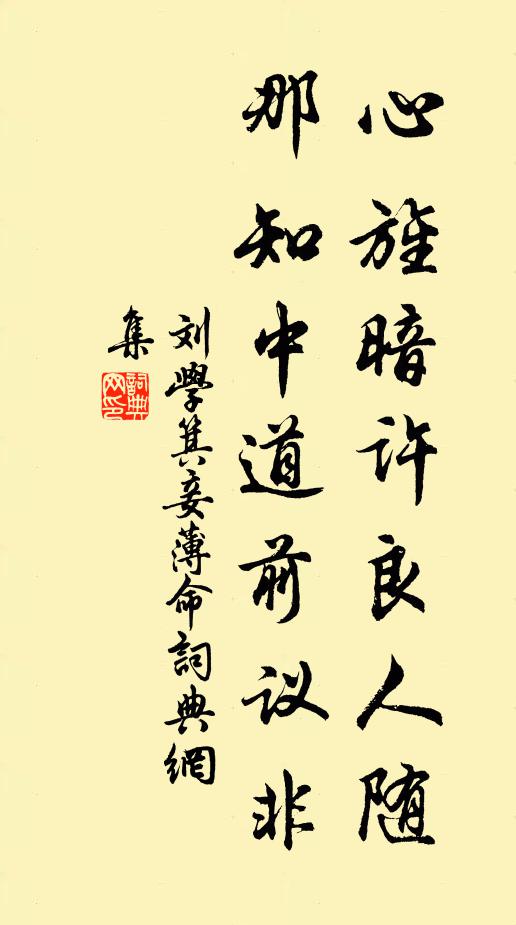 心旌暗许良人随
那知中道前议非
刘学箕妾薄命詞典網
集
詞典
网印